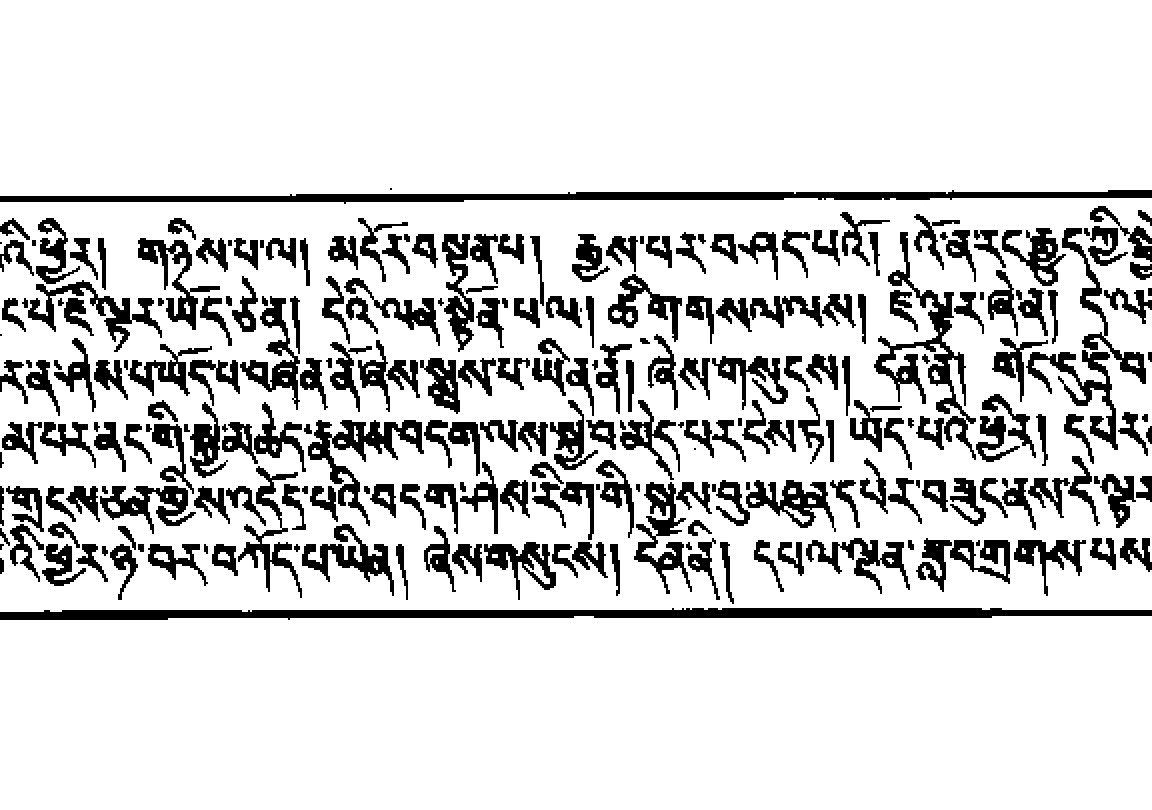 འི་ཕྱིར། གཉིས་པ་ལ། མདོར་བསྟན་པ། རྒྱས་པར་བཤད་པའོ། །འོན་རང་རྒྱུད་ཀྱི་
ད་པ་ཇི་ལྟར་ཡོད་ཅེ་ན། དེའི་ལན་སྟོན་པ་ལ། ཚིག་གསལ་ལས། ཇི་ལྟར་ཞེ་ན། དེ་ལ་
ར་ན་ཤེས་པ་ཡོད་པ་བཞིན་ནོ་ཞེས་སྨྲས་པ་ཡིན་ནོ། ཞེས་གསུངས། དོན་ནི། གོང་དུ་
མ་པར་ནང་གི་སྐྱེ་མཆེད་རྣམས་བདག་ལས་སྐྱེ་བ་མེད་པར་ངེས་ཏེ། ཡོད་པའི་ཕྱིར། དཔེར་
གྲངས་ཅན་གྱིས་འདོད་པའི་བདག་ཤེས་རིག་གི་སྐྱེས་བུ་མཐུན་དཔེར་བཟུང་ནས་དེ་ལྟར
འི་ཕྱིར་ཉེ་བར་བཀོད་པ་ཡིན། ཞེས་གསུངས། དོན་ནི། དཔལ་ལྡན་ཟླ་བ་གྲགས་པས